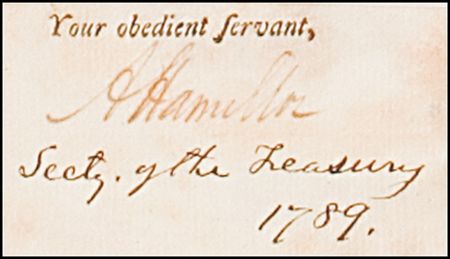 Your obedient ſervant,
A Hamilton
Secty. of the Treasury
1789.